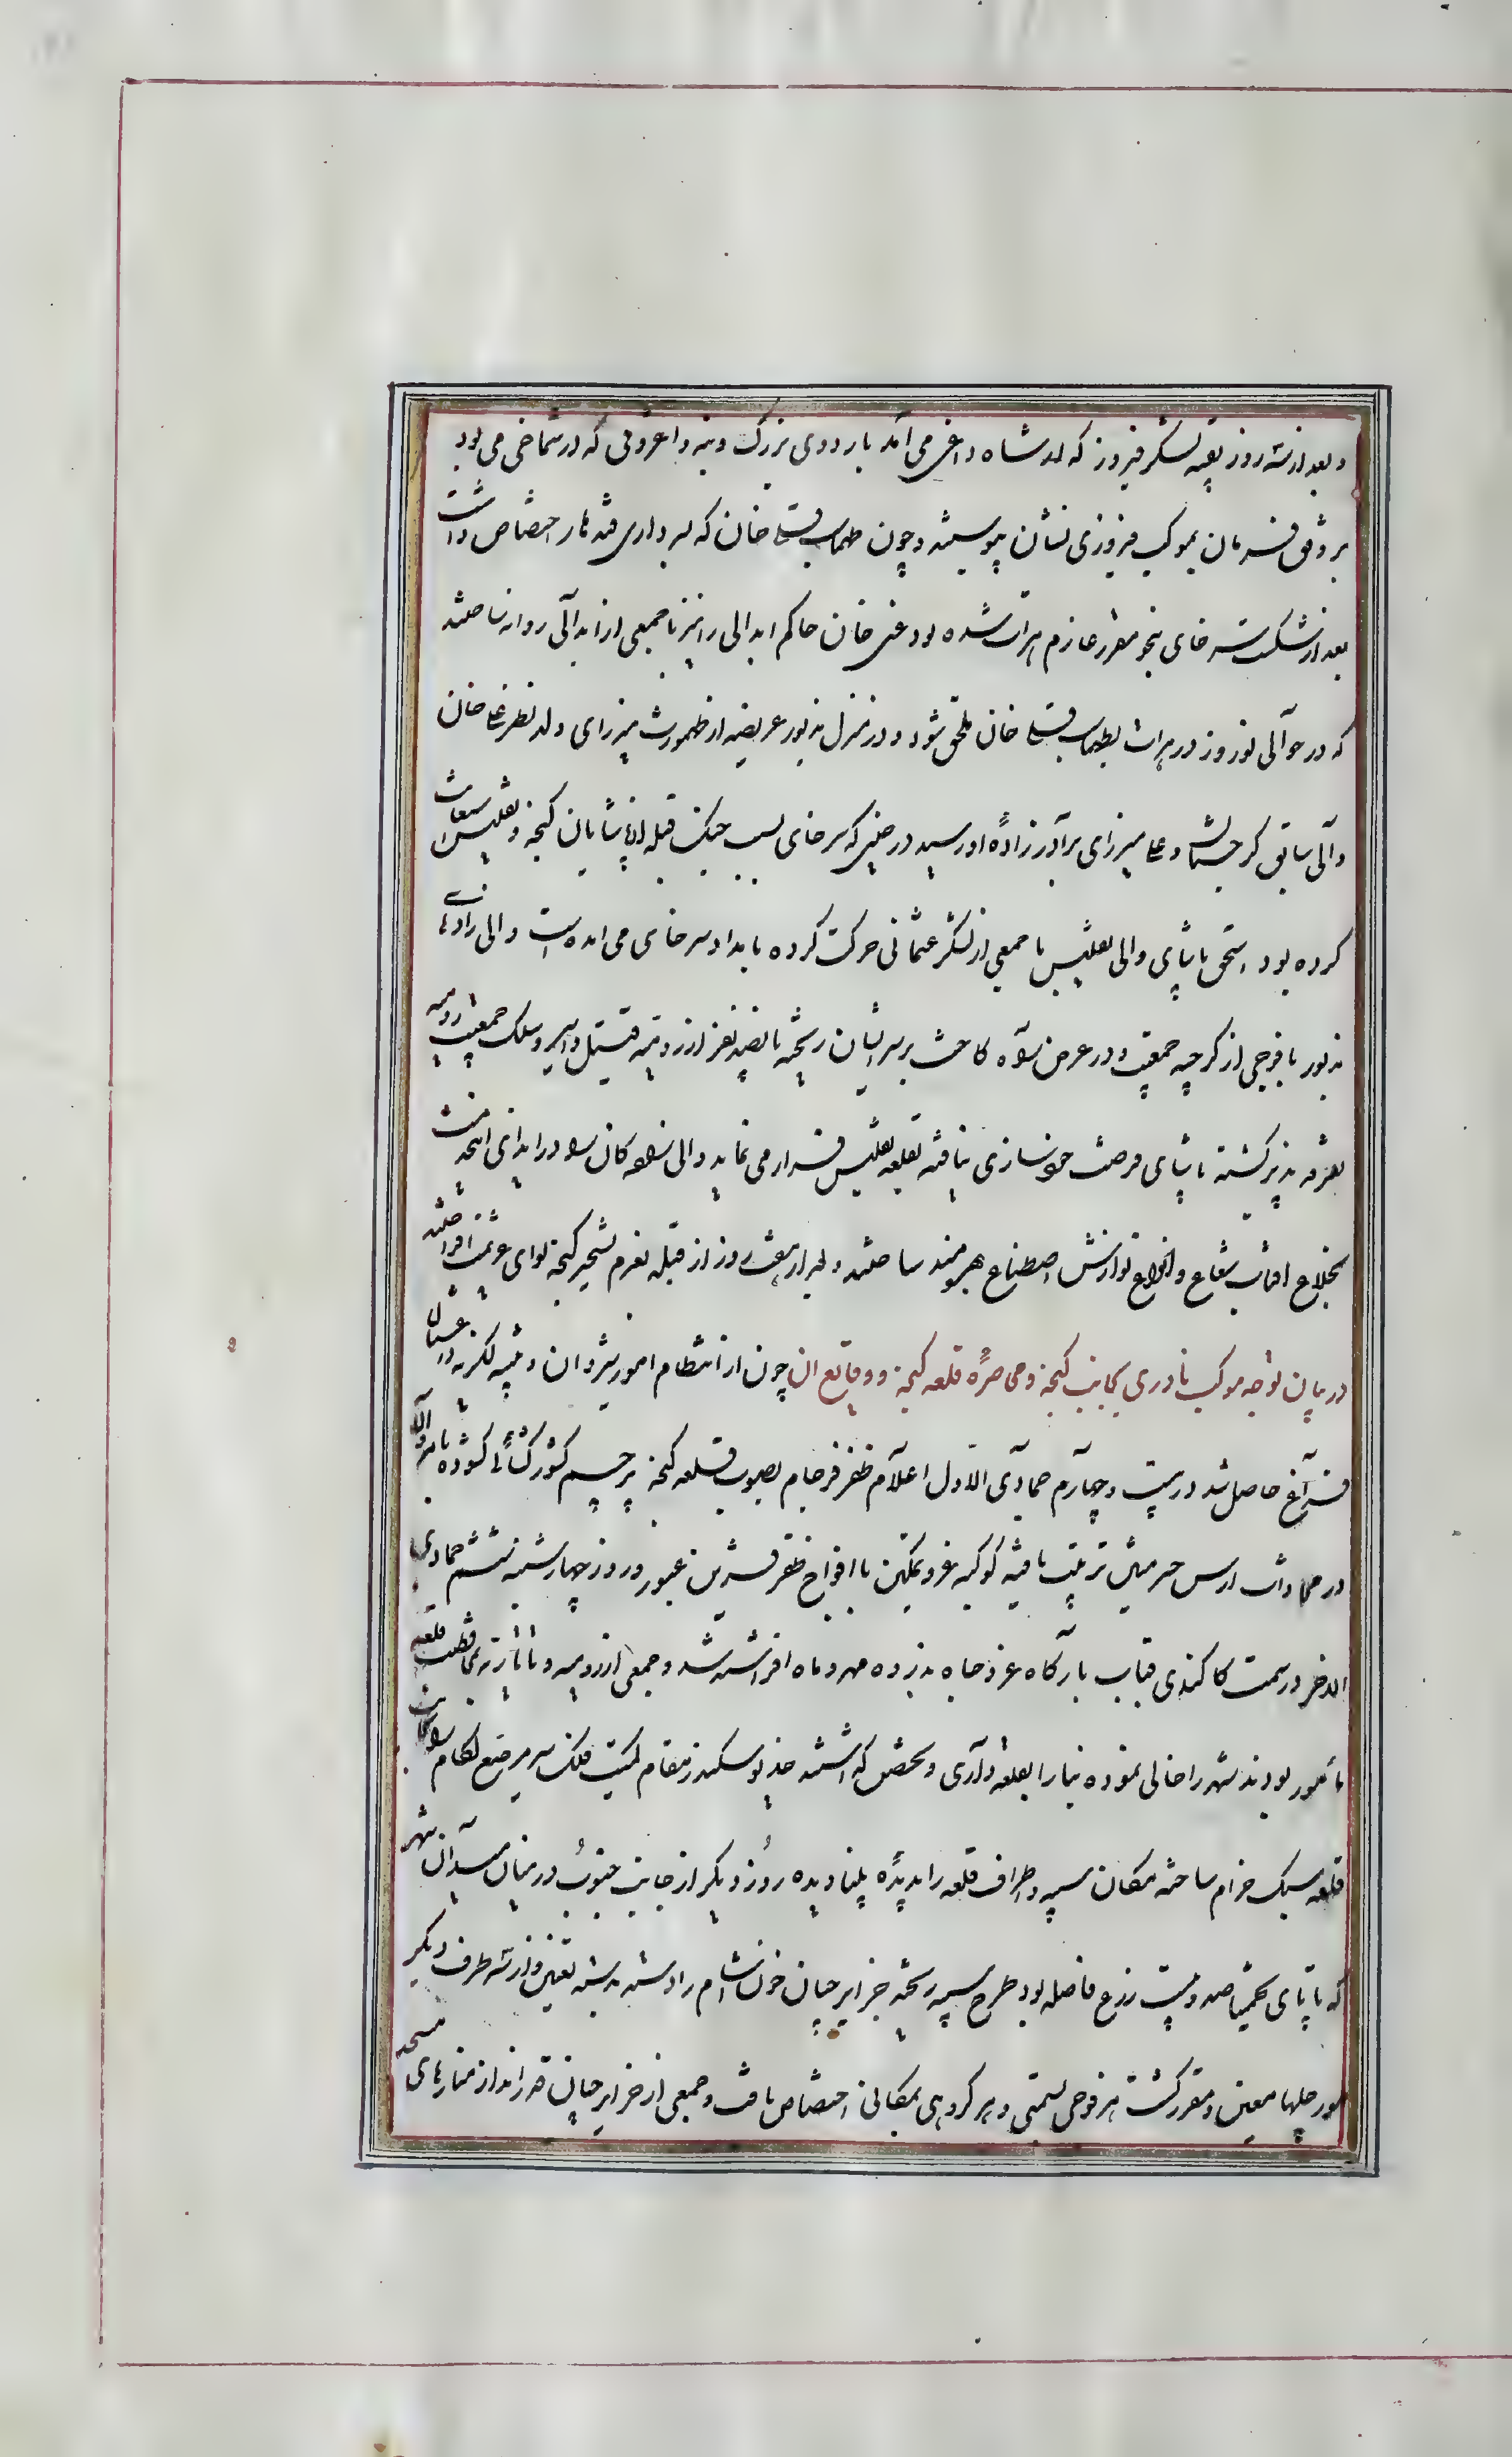 و بعد از سه روز بقیه لشکر فیروز که از شاه داغی می آمد با اردوی بزرگ و بنه و اغروقی که در شماخی می بود
بر وفق فرمان بموکب فیروزی نشان پیوستند و چون طهماسب قلی خان که بسرداری قندهار اختصاص داشت
بعد از شکست سرخای بنحو مقرر عازم هرات شده بود غنی خان حاکم ابدالی را نیز با جمعی از ابدالی روانه ساختند
که در حوالی نوروز در هرات بطهماسب قلی خان ملحق شود و در منزل مزبور عریضه از طهمورث میرزای ولد نظر علی خان
والی سابق کرجستان و علی میرزای برادر زاده او رسید در حینی که سرخای بسبب جنک قبله از پاشایان کنجه و تفلیس استعانت
کرده بود اسحق پاشای والی تفلیس با جمعی از لشکر عثمانی حرکت کرده بامداد سرخای می امده است والی زادهای
مزبور با فوجی از کرجیه جمعیت و در عرض راه کاخت بر سر ایشان ریخته پانصد نفر از رومیه قتیل و اسیر و سلک جمعیت رومیه
تفرقه پذیر کشته پاشای فرصت خودسازی نیافته بقلعه تفلیس فرار می نماید والی زاده کان را در ازای این خدمت
بخلاع افتاب شعاع و انواع نوازش و اصطناع بهره مند ساختند و بعد از هفت روز از قبله بعزم تسخیر کنجه لوای عزیمت افراختند
در بیان توجه موکب نادری بجانب کنجه و محاصره قلعه کنجه و وقایع ان چون از انتظام امور شیروان و تنبیه لکزیه در عین شتا
فراغ حاصل شد در بیست و چهارم جمادی الاول اعلام ظفر فرجام بصوب قلعه کنجه پرچم کشور کشائی کشوده
در محاذات ارس جسر متین ترتیب یافته کوکبه عز و تمکین با افواج ظفر قرین عبور و روز چهارشنبه ششم جمادی
الاخر در سمت کاکندی قباب بارکاه عز و جاه بذروه مهر و ماه افراشته شد و جمعی از رومیه و تاتاریه که بمحافظت قلعه
مأمور بودند شهر را خالی نموده بنا را بقلعه داری و تحصن کذاشتند خدیو سکندر مقام کمیت فلک سیر مرصع لکام را بجانب
قلعه سبک خرام ساخته مکان سیبه و اطراف قلعه را بدیده بینا دیده روز دیکر از جانب جنوب در میان میدان شهر
که تا پای قلعه تخمینا صد و بیست ذرع فاصله بود طرح سیبه ریخته جزایرچیان خون آشام را دسته بدسته تعیین و از سه طرف دیکر
مورچلها معین و مقرر کشت هر فوجی بسمتی و هر کروهی بمکانی اختصاص یافت و جمعی از جزایرچیان قدرانداز منارهای مسجد